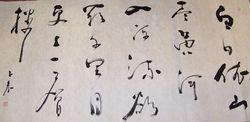 白日依山
盡黃河
入海流欲
窮千里目
更上一層
樓